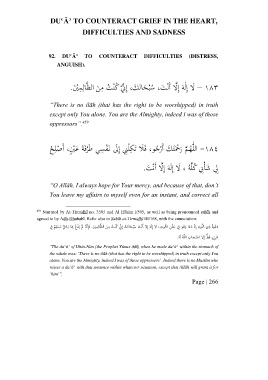 DU‘Â’ TO COUNTERACT GRIEF IN THE HEART,
DIFFICULTIES AND SADNESS
92. DU‘Â’ TO COUNTERACT DIFFICULTIES (DISTRESS,
ANGUISH).
١٨٣ – لَا إِلَهَ إِلَّا أَنْتَ، سُبْحَانَكَ، إِنِّي كُنْتُ مِنَ الظَّالِمِيْنَ.
“There is no ilâh (that has the right to be worshipped) in truth
except only You alone. You are the Almighty, indeed I was of those
oppressors”.
١٨٤– اللَّهُمَّ رَحْمَتَكَ أَرْجُو، فَلَا تَكِلْنِي إِلَى نَفْسِي طَرْفَةَ عَيْنٍ، أَصْلِحْ
لِي شَأْنِي كُلَّهُ، لَا إِلَهَ إِلَّا أَنْتَ.
“O Allâh, I always hope for Your mercy, and because of that, don’t
You leave my affairs to myself even for an instant, and correct all
Narrated by At-Tirmidhî no. 3505 and Al-Hâkim I/505, as well as being pronounced sahîh and
agreed to by Adh-Dhahabî. Refer also to Sahîh At-Tirmidhî III/168, with the annotation:
“The du‘â’ of Dhûn-Nûn (the Prophet Yûnus), when he made du‘â’ within the stomach of
the whale was: ‘There is no ilâh (that has the right to be worshipped) in truth except only You
alone. You are the Almighty, indeed I was of those oppressors’. Indeed there is no Muslim who
raises a du‘â’ with that sentence within whatever situation, except that Allâh will grant it for
him”.
Page | 266